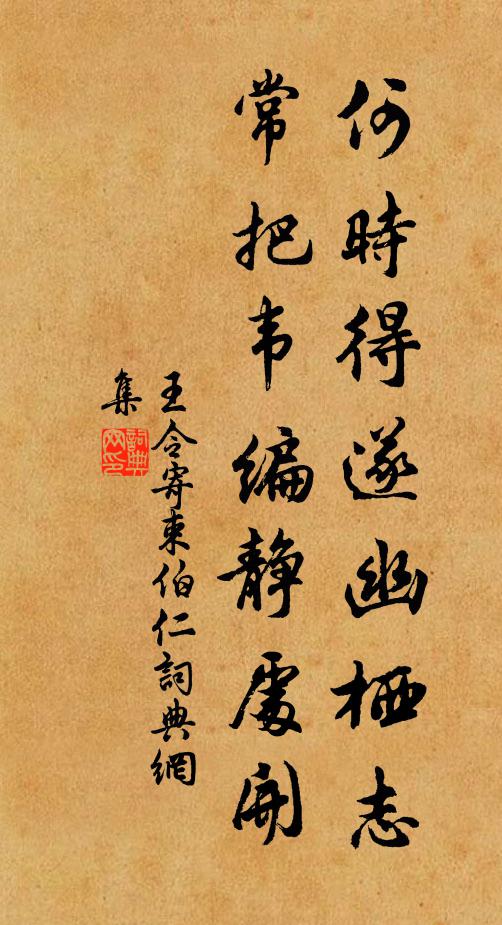 何時得遂幽栖志
常把韦編静處開
王令寄束伯仁詞典網
集
詞典網印